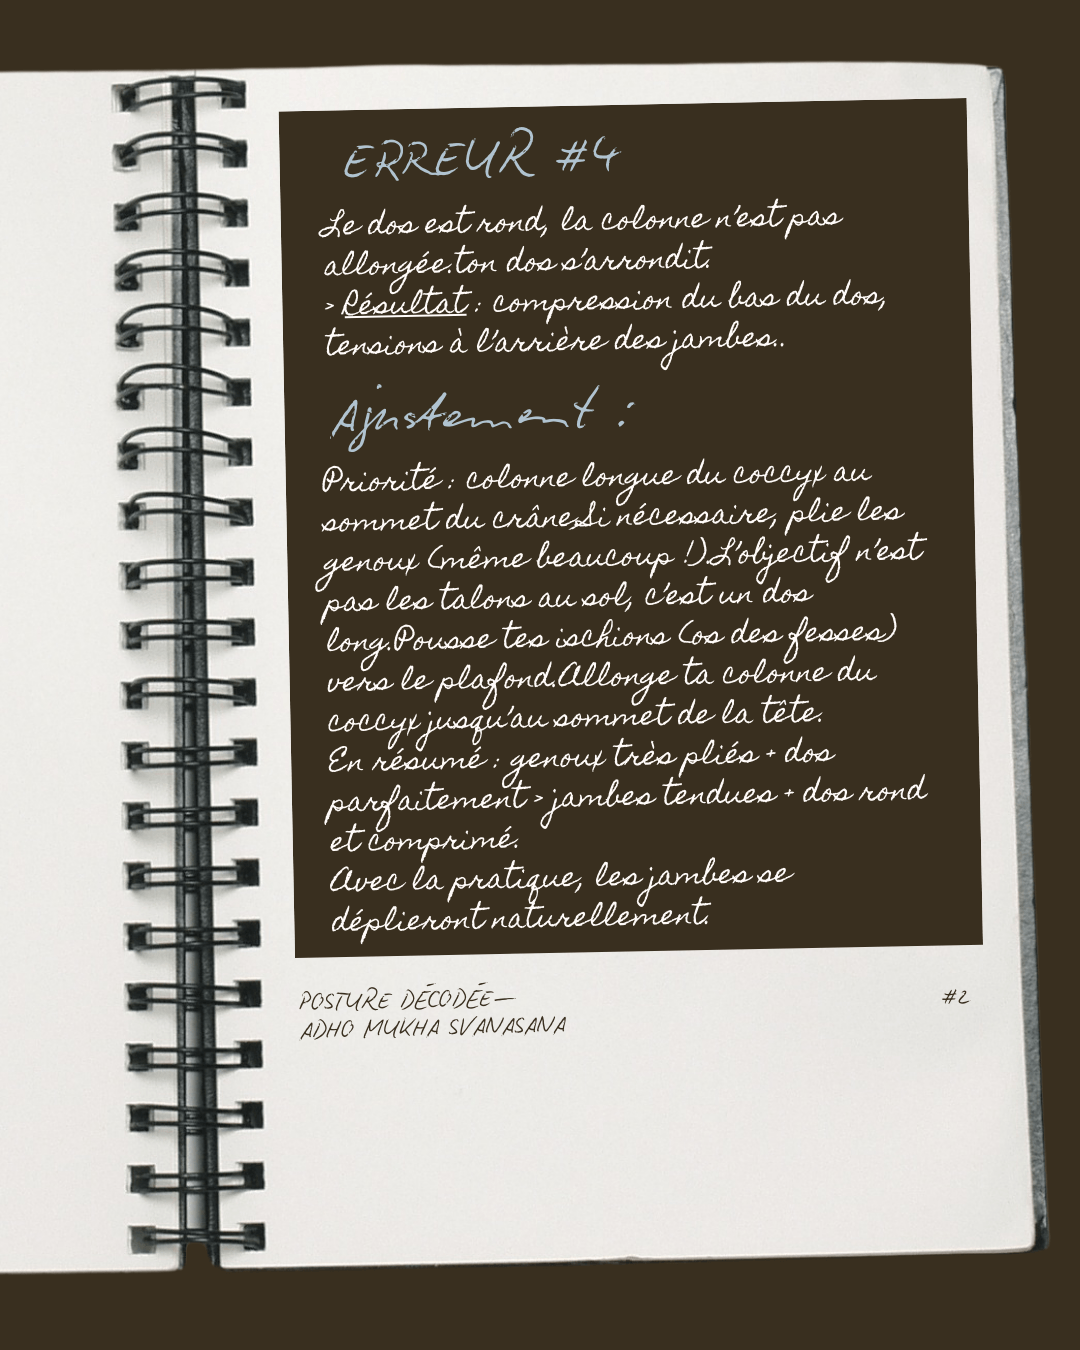 ERREUR #4
Le dos est rond, la colonne n'est pas
allongée.ton dos s'arrondit.
> Résultat : compression du bas du dos,
tensions à l'arrière des jambes..
Ajustement :
Priorité : colonne longue du coccyx au
sommet du crâne.Si nécessaire, plie les
genoux (même beaucoup !).L'objectif n'est
pas les talons au sol, c'est un dos
long.Pousse tes ischions (os des fesses)
vers le plafond.Allonge ta colonne du
coccyx jusqu'au sommet de la tête.
En résumé : genoux très pliés + dos
parfaitement > jambes tendues + dos rond
et comprimé.
Avec la pratique, les jambes se
déplieront naturellement.
POSTURE DÉCODÉE—
ADHO MUKHA SVANASANA
#2